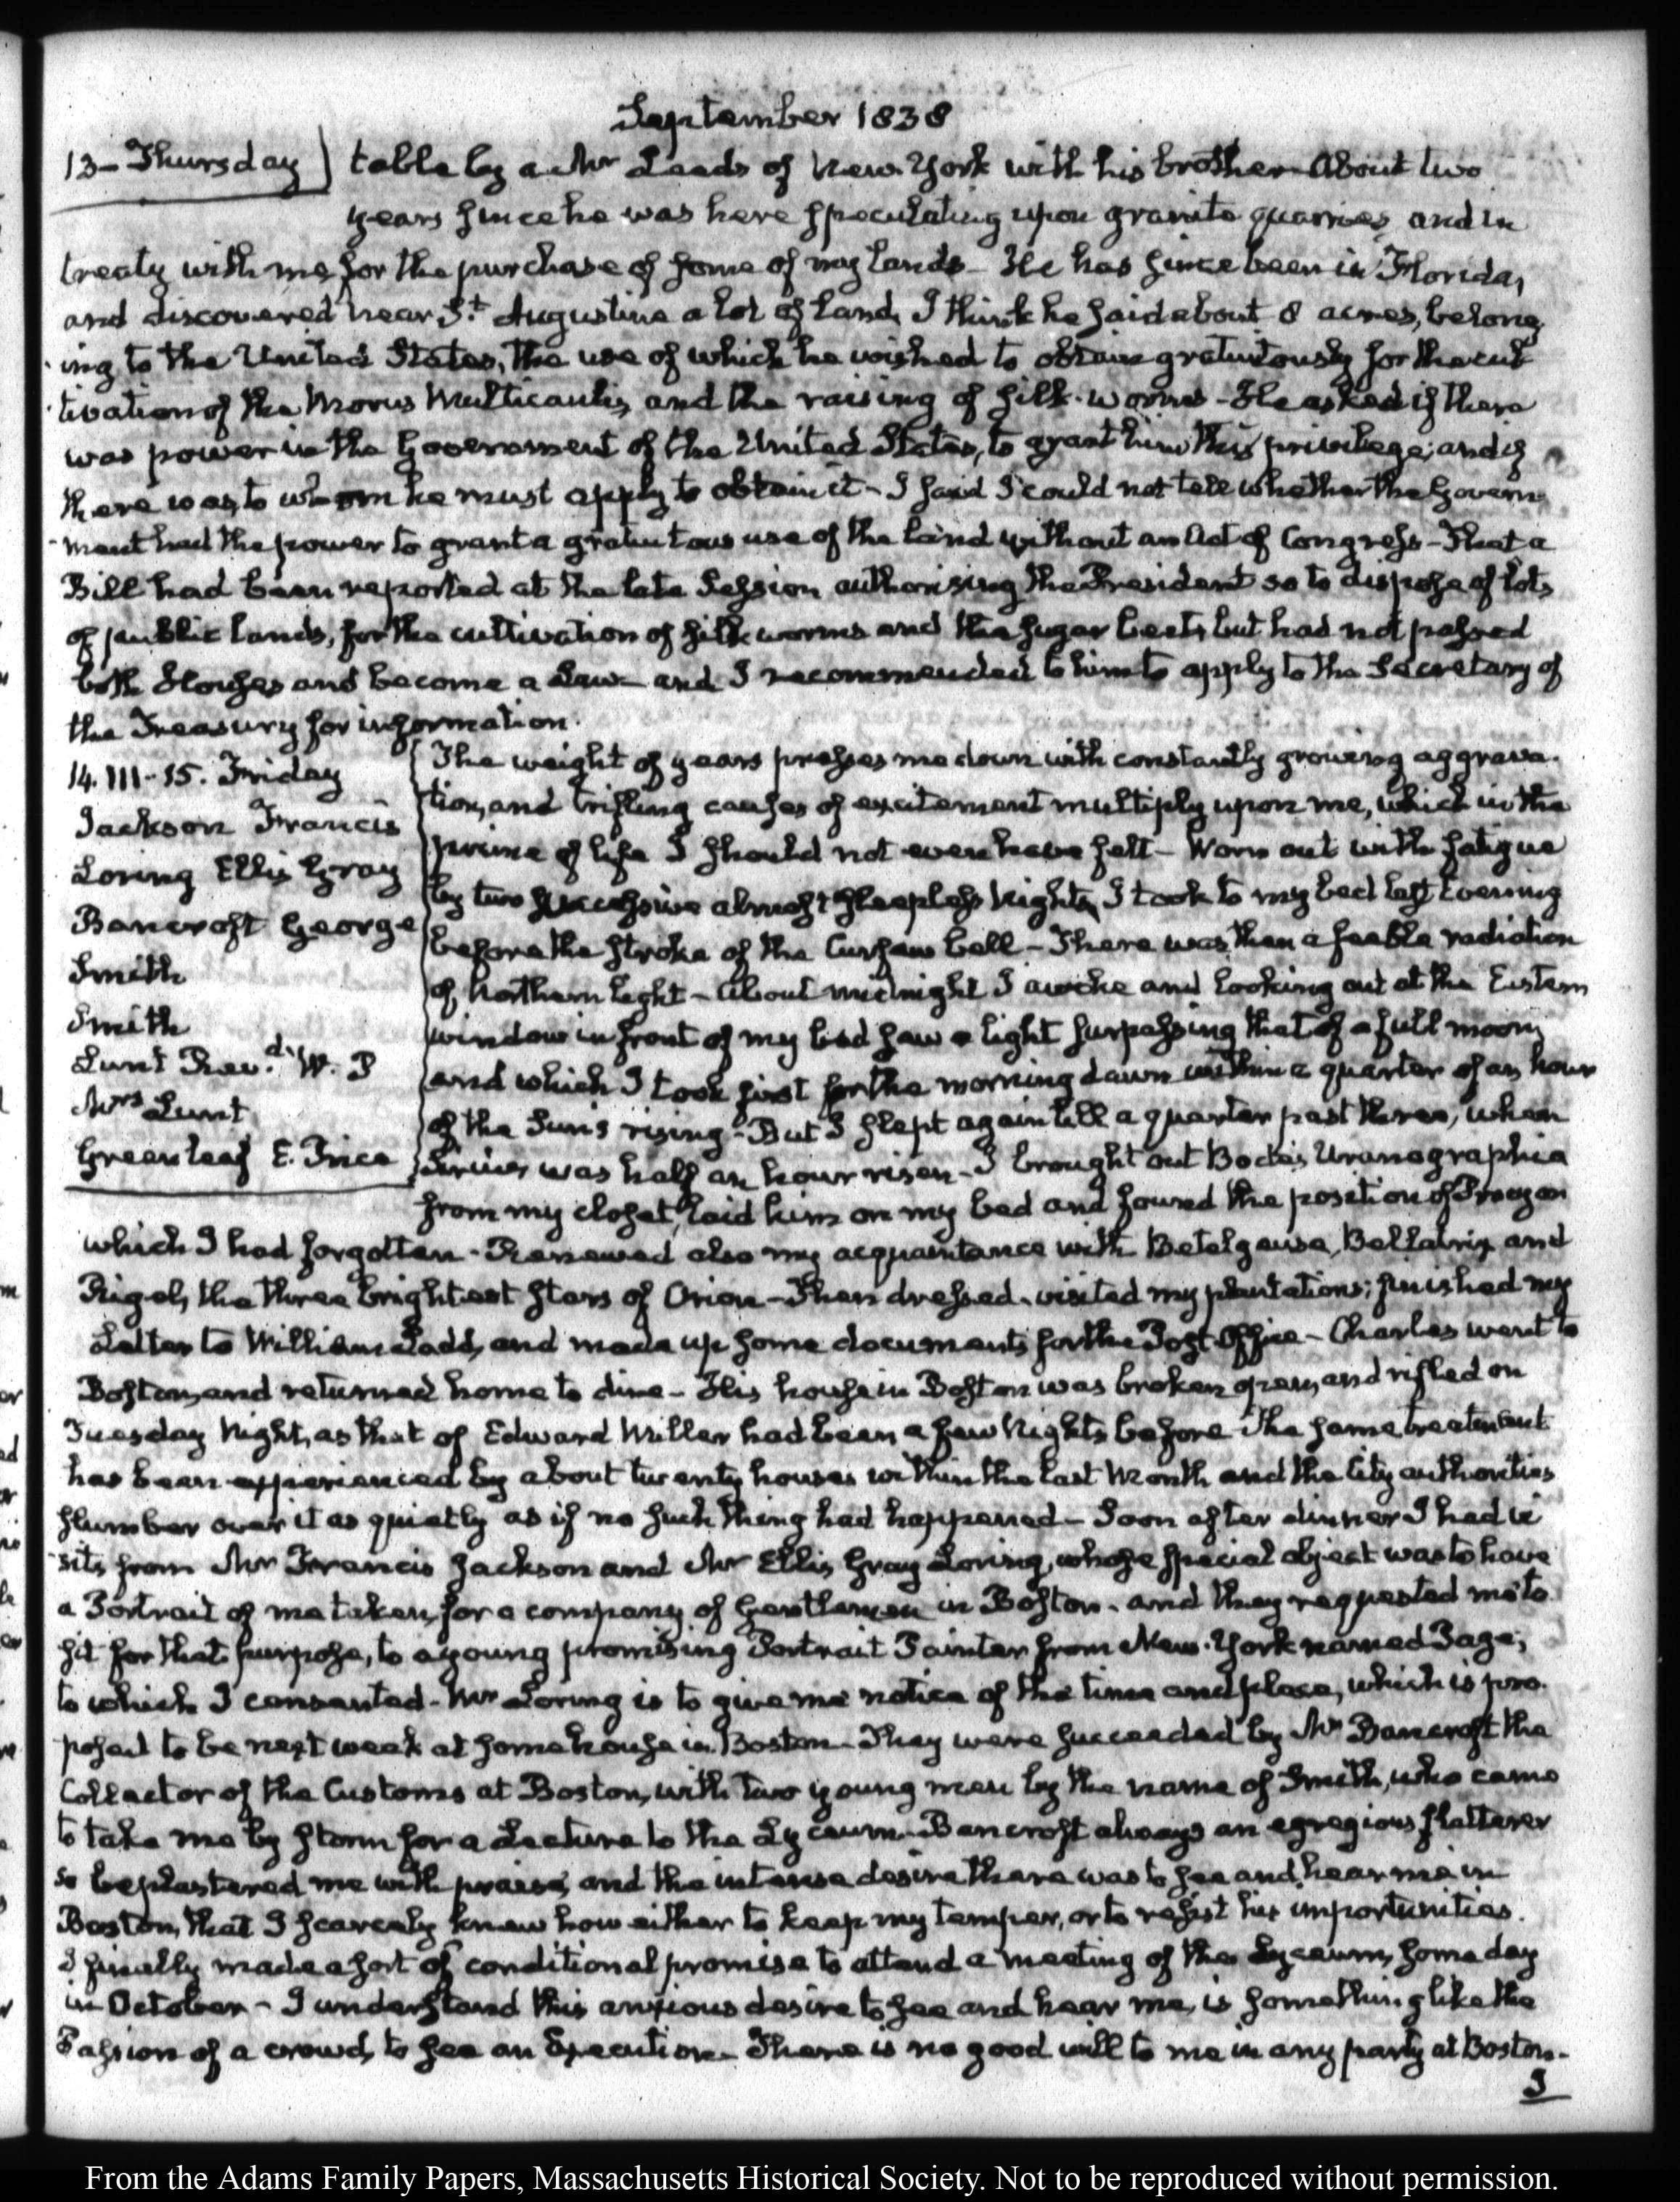 September 1838
13- Thursday
table by a Mr Leeds of New-York with his brother. About two
years since he was here speculating upon granite quarries, and in
treaty with me, for the purchase of some of my lands- He has since been in Florida,
and discovered near St. Augustine a lot of land, I think he said about 8 acres, belong
ing to the United States, the use of which he wished to obtain gratuitously for the cul
tivation of the Morus Multicaulis, and the raising of silk-worms- He asked if there
was power in the Government of the United States, to grant him this privilege; and if
there was, to whom he must apply to obtain it- I said I could not tell whether the Govern
ment had the power to grant a gratuitous use of the land without an Act of Congress- That a
Bill had been reported at the late Session authorising the President so to dispose of lots
of public lands, for the cultivation of silk worms and the sugar beet, but had not passed
both Houses and become a Law- and I recommended to him to apply to the Secretary of
the Treasury for information.
14. III-15. Friday
Jackson Francis
Loring Ellis Gray
Bancroft George
Smith
Smith
Lunt Revd. W. P
Mrs Lunt
Greenleaf E. Price
The weight of years presses me down with constantly growing aggrava-
tion, and trifling causes of excitement multiply upon me, which in the
prime of life I should not even have felt- Worn out with fatigue
by two successive almost sleepless Nights, I took to my bed last Evening
before the stroke of the Curfew bell- There was then a feeble radiation
of Northern light- About midnight I awoke and looking out at the Eastern
window in front of my bed saw a light surpassing that of a full moon,
and which I took first for the morning dawn within a quarter of an hour
of the Sun's rising- But I slept again till a quarter past three, when
Sirius was half an hour risen- I brought out Bode's Uranographia
from my closet, laid him on my bed and found the position of Procyon
which I had forgotten- Renewed also my acquaintance with Betelgeuse, Bellatrix and
Rigel, the three brightest stars of Orion- Then dressed, visited my plantations; finished my
Letter to William Ladd, and made up some documents for the Post-Office- Charles went to
Boston, and returned home to dine- His house in Boston was broken open, and rifled on
Tuesday Night, as that of Edward Miller had been a few Nights before- The same treatment
has been experienced by about twenty houses within the last Month and the City authorities
slumber over it as quietly as if no such thing had happened- Soon after dinner I had vi
sits from Mr Francis Jackson and Mr Ellis Gray Loring, whose special object was to have
a Portrait of me taken, for a company of Gentlemen in Boston. and they requested me to
sit for that purpose, to a young promising Portrait Painter from New-York named Page;
to which I consented- Mr Loring is to give me notice of the time and place, which is pro-
posed to be next week at some house in Boston- They were succeeded by Mr Bancroft the
Collector of the Customs at Boston, with two young men by the name of Smith, who came
to take me by storm for a Lecture to the Lyceum. Bancroft always an egregious flatterer
so beplastered me with praise, and the intense desire there was to see and hear me in
Boston, that I scarcely knew how either to keep my temper, or to resist his importunities.
I finally made a sort of conditional promise to attend a meeting of the Lyceum, some day
in October- I understand this anxious desire to see and hear me, is something like the
Passion of a crowd, to see an Execution- There is no good will to me in any party at Boston-
I
From the Adams Family Papers, Massachusetts Historical Society. Not to be reproduced without permission.